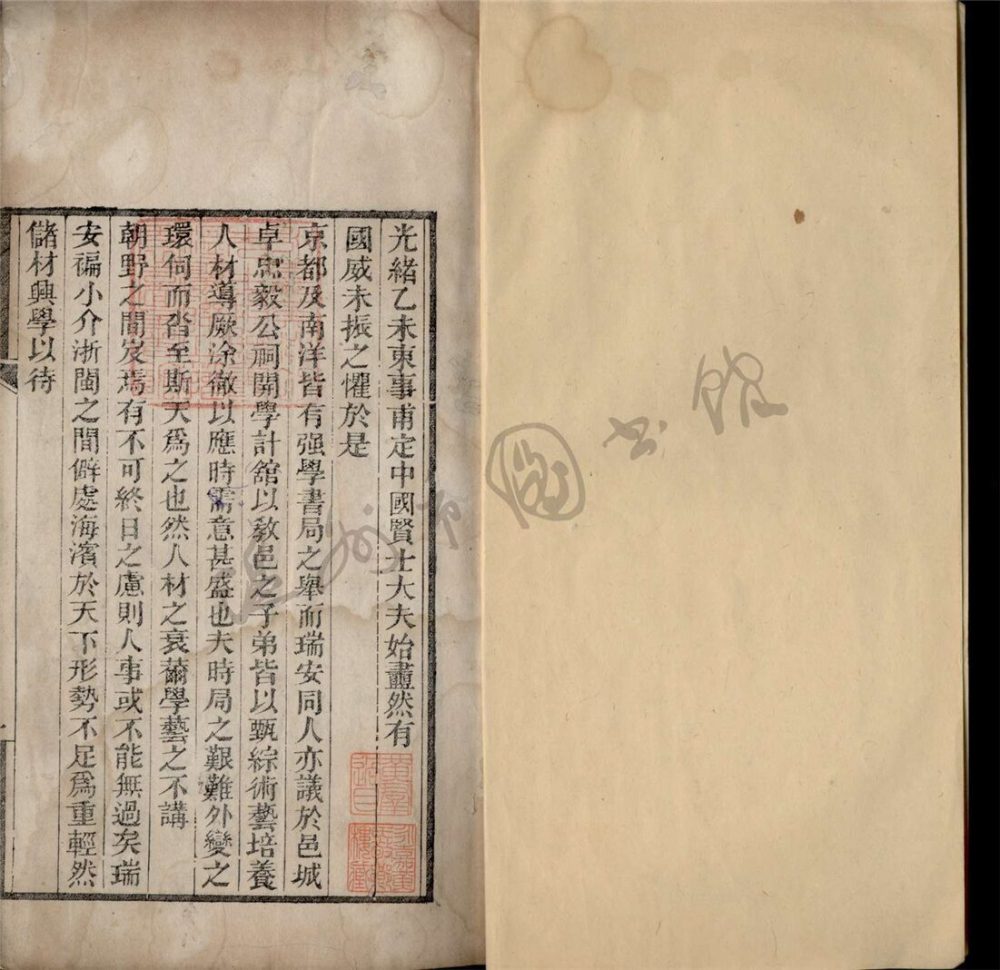 光緒乙未東事甫定中國賢士大夫始衋然有
國威未振之懼於是
京都及南洋皆有强學書局之舉而瑞安同人亦議於邑城
卓忠毅公祠開學計館以敎邑之子弟皆以甄綜術藝培養
人材導厥涂徹以應時需意甚盛也夫時局之艱難外變之
環伺而沓至斯天爲之也然人材之衰薾學藝之不講
朝野之間岌焉有不可終日之慮則人事或不能無過矣瑞
安褊小介浙閩之間僻處海濱於天下形勢不足爲重輕然
儲材興學以待
州市圖书館